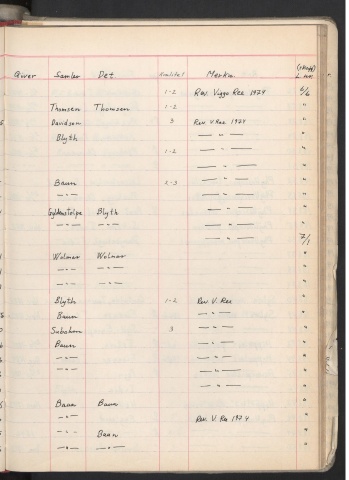 Giver Samler Det. Kvalitet Merkn. (skuff) L.nr.
1-2 Rev. Viggo Ree 1974 6/6
Thomsen Thomsen 1-2 "
Davidson 3 Rev V. Ree 1974 "
Blyth — " — "
1-2 — " — "
— " — "
Baun 2-3 — " — "
— " — — " — "
Gyldenstolpe Blyth — " — "
— " — — " — — " — "
— " — 7/1
Wolmar Wolmar "
— " — — " — "
— " — — " — "
Blyth 1-2 Rev. V. Ree "
Baun — " — "
Suboham 3 — " — "
Baun — " — "
— " — — " — "
— " — "
Baun Baun "
— " — Rev. V. Ree 1974 "
— " — Baun "
— " — — " — "